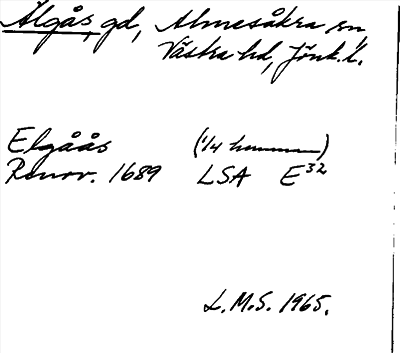 Älgås, gd, Almesåkra sn
Västra hd, Jönk. l.
Elgåås (1/4 hemman)
Renov. 1689 LSA E32
L.M.S. 1965.